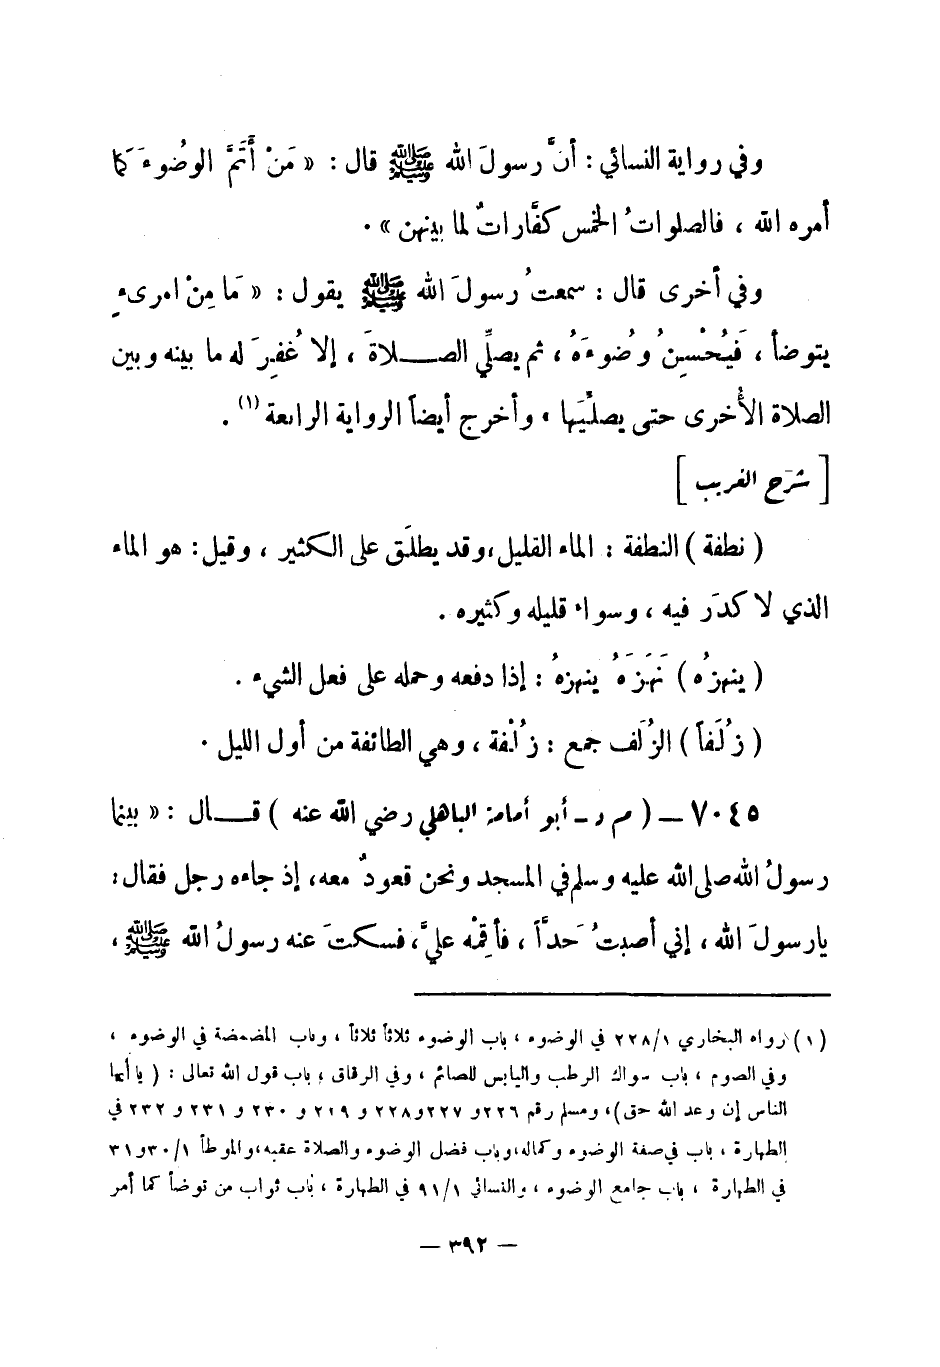 وفي رواية النسائي : أنَّ رسولَ الله ﷺ قال : « مَنْ أَتَمَّ الوضُوءَ كما
أمره الله ، فالصلواتُ الخمس كفَّاراتٌ لما بينهن » .
وفي أخرى قال : سمعتُ رسولَ الله ﷺ يقول : « مَا مِنْ امرىءٍ
يتوضأ ، فَيُحْسِنُ وُضُوءَهُ ، ثم يصلِّي الصـلاةَ ، إلا غُفِرَ له ما بينه وبين
الصلاة الأُخرى حتى يصلّيَها » وأخرج أيضاً الرواية الرابعة (١) .
[ شرح الغريب ]
( نطفة ) النطفة : الماء القليل ،وقد يطلَق على الكثير ، وقيل : هو الماء
الذي لا كدَر فيه ، وسواء قليله وكثيره .
( ينهزُه ) نَهَزَهُ ينهزهُ : إذا دفعه وحمله على فعل الشيء .
( زُلَفاً ) الزُلَف جمع : زُلْفة ، وهي الطائفة من أول الليل .
٧٠٤٥ – ( م د - أبو أمامة الباهلي رضي الله عنه ) قـال : « بينما
رسولُ الله صلى الله عليه وسلم في المسجد ونحن قعودٌ معه، إذ جاءه رجل فقال :
يارسولَ الله ، إني أصبتُ حَدّاً ، فأَقِمْه عليَّ، فسكتَ عنه رسولُ الله ﷺ ،
(١) رواه البخاري ٢٢٨/١ في الوضوء ، باب الوضوء ثلاثاً ثلاثاً ، وباب المضمضة في الوضوء ،
وفي الصوم ، باب سواك الرطب واليابس للصائم ، وفي الرقاق ، باب قول الله تعالى : ( يا أيها
الناس إن وعد الله حق )، ومسلم رقم ٢٢٦ و ٢٢٧ و٢٢٨ و ٢١٩ و ٢٣٠ و ٢٣١ و ٢٣٢ في
الطهارة ، باب في صفة الوضوء وكماله،وباب فضل الوضوء والصلاة عقبه،والموطأ ٣٠/١ و٣١
في الطهارة ، باب جامع الوضوء ، والنسائي ٩١/١ في الطهارة ، باب ثواب من توضأ كما أمر
– ٣٩٢ –